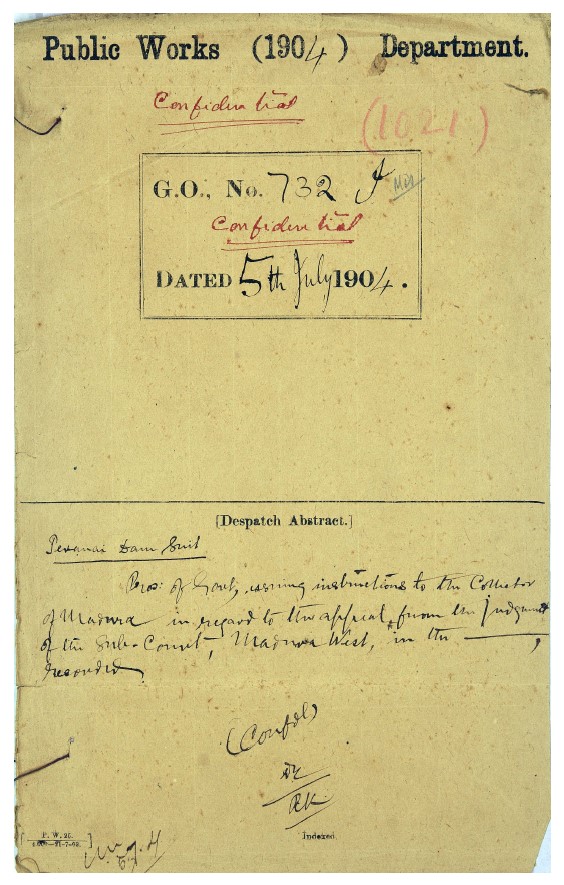 Public Works (1904) Department.
Confidential
(1021)
G.O., No. 732 I Mis
Confidential
DATED 5th July 1904.
[Despatch Abstract.]
Peranai Dam Suit
Pros: of Govt, issuing instructions to the Collector
of Madura in regard to the appeal from the Judgment
of the Sub-Court, Madura West, in the ———,
recorded
(Confdl)
RK
Indexed.
P. W. 25.